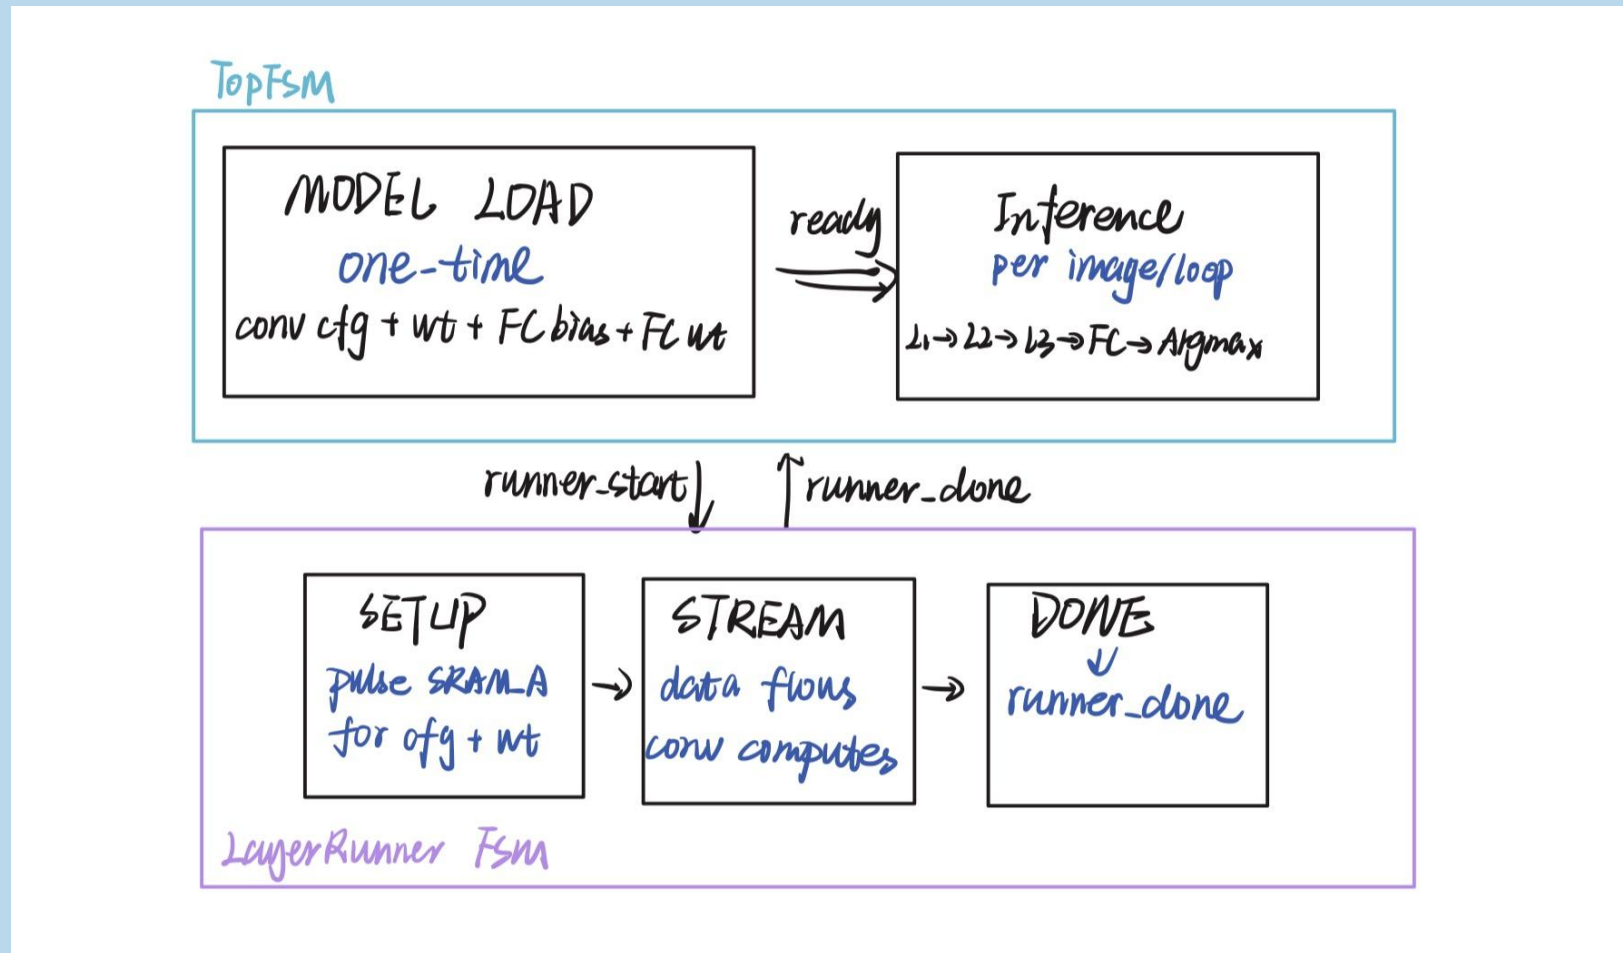 TopFSM
MODEL LOAD
one-time
conv cfg + wt + FC bias + FC wt
ready
Inference
per image/loop
L1→L2→L3→FC→Argmax
runner_start
runner_done
SETUP
pulse SRAM_A
for cfg + wt
STREAM
data flows
conv computes
DONE
runner_done
LayerRunner Fsm